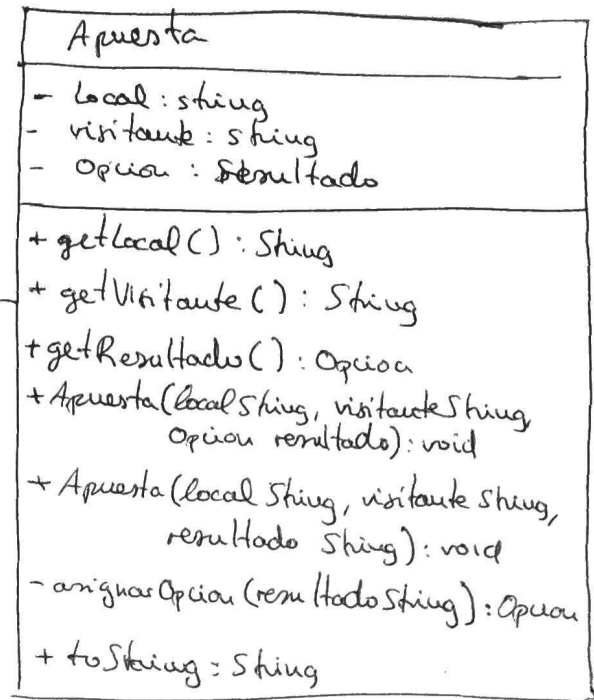 Apuesta
- Local : string
- visitante : string
- Opcion : Resultado
+ getLocal() : String
+ getVisitante() : String
+ getResultado() : Opcion
+ Apuesta(local String, visitante String,
Opcion resultado) : void
+ Apuesta(local String, visitante String,
resultado String) : void
- asignarOpcion(resultado String) : Opcion
+ toString : String